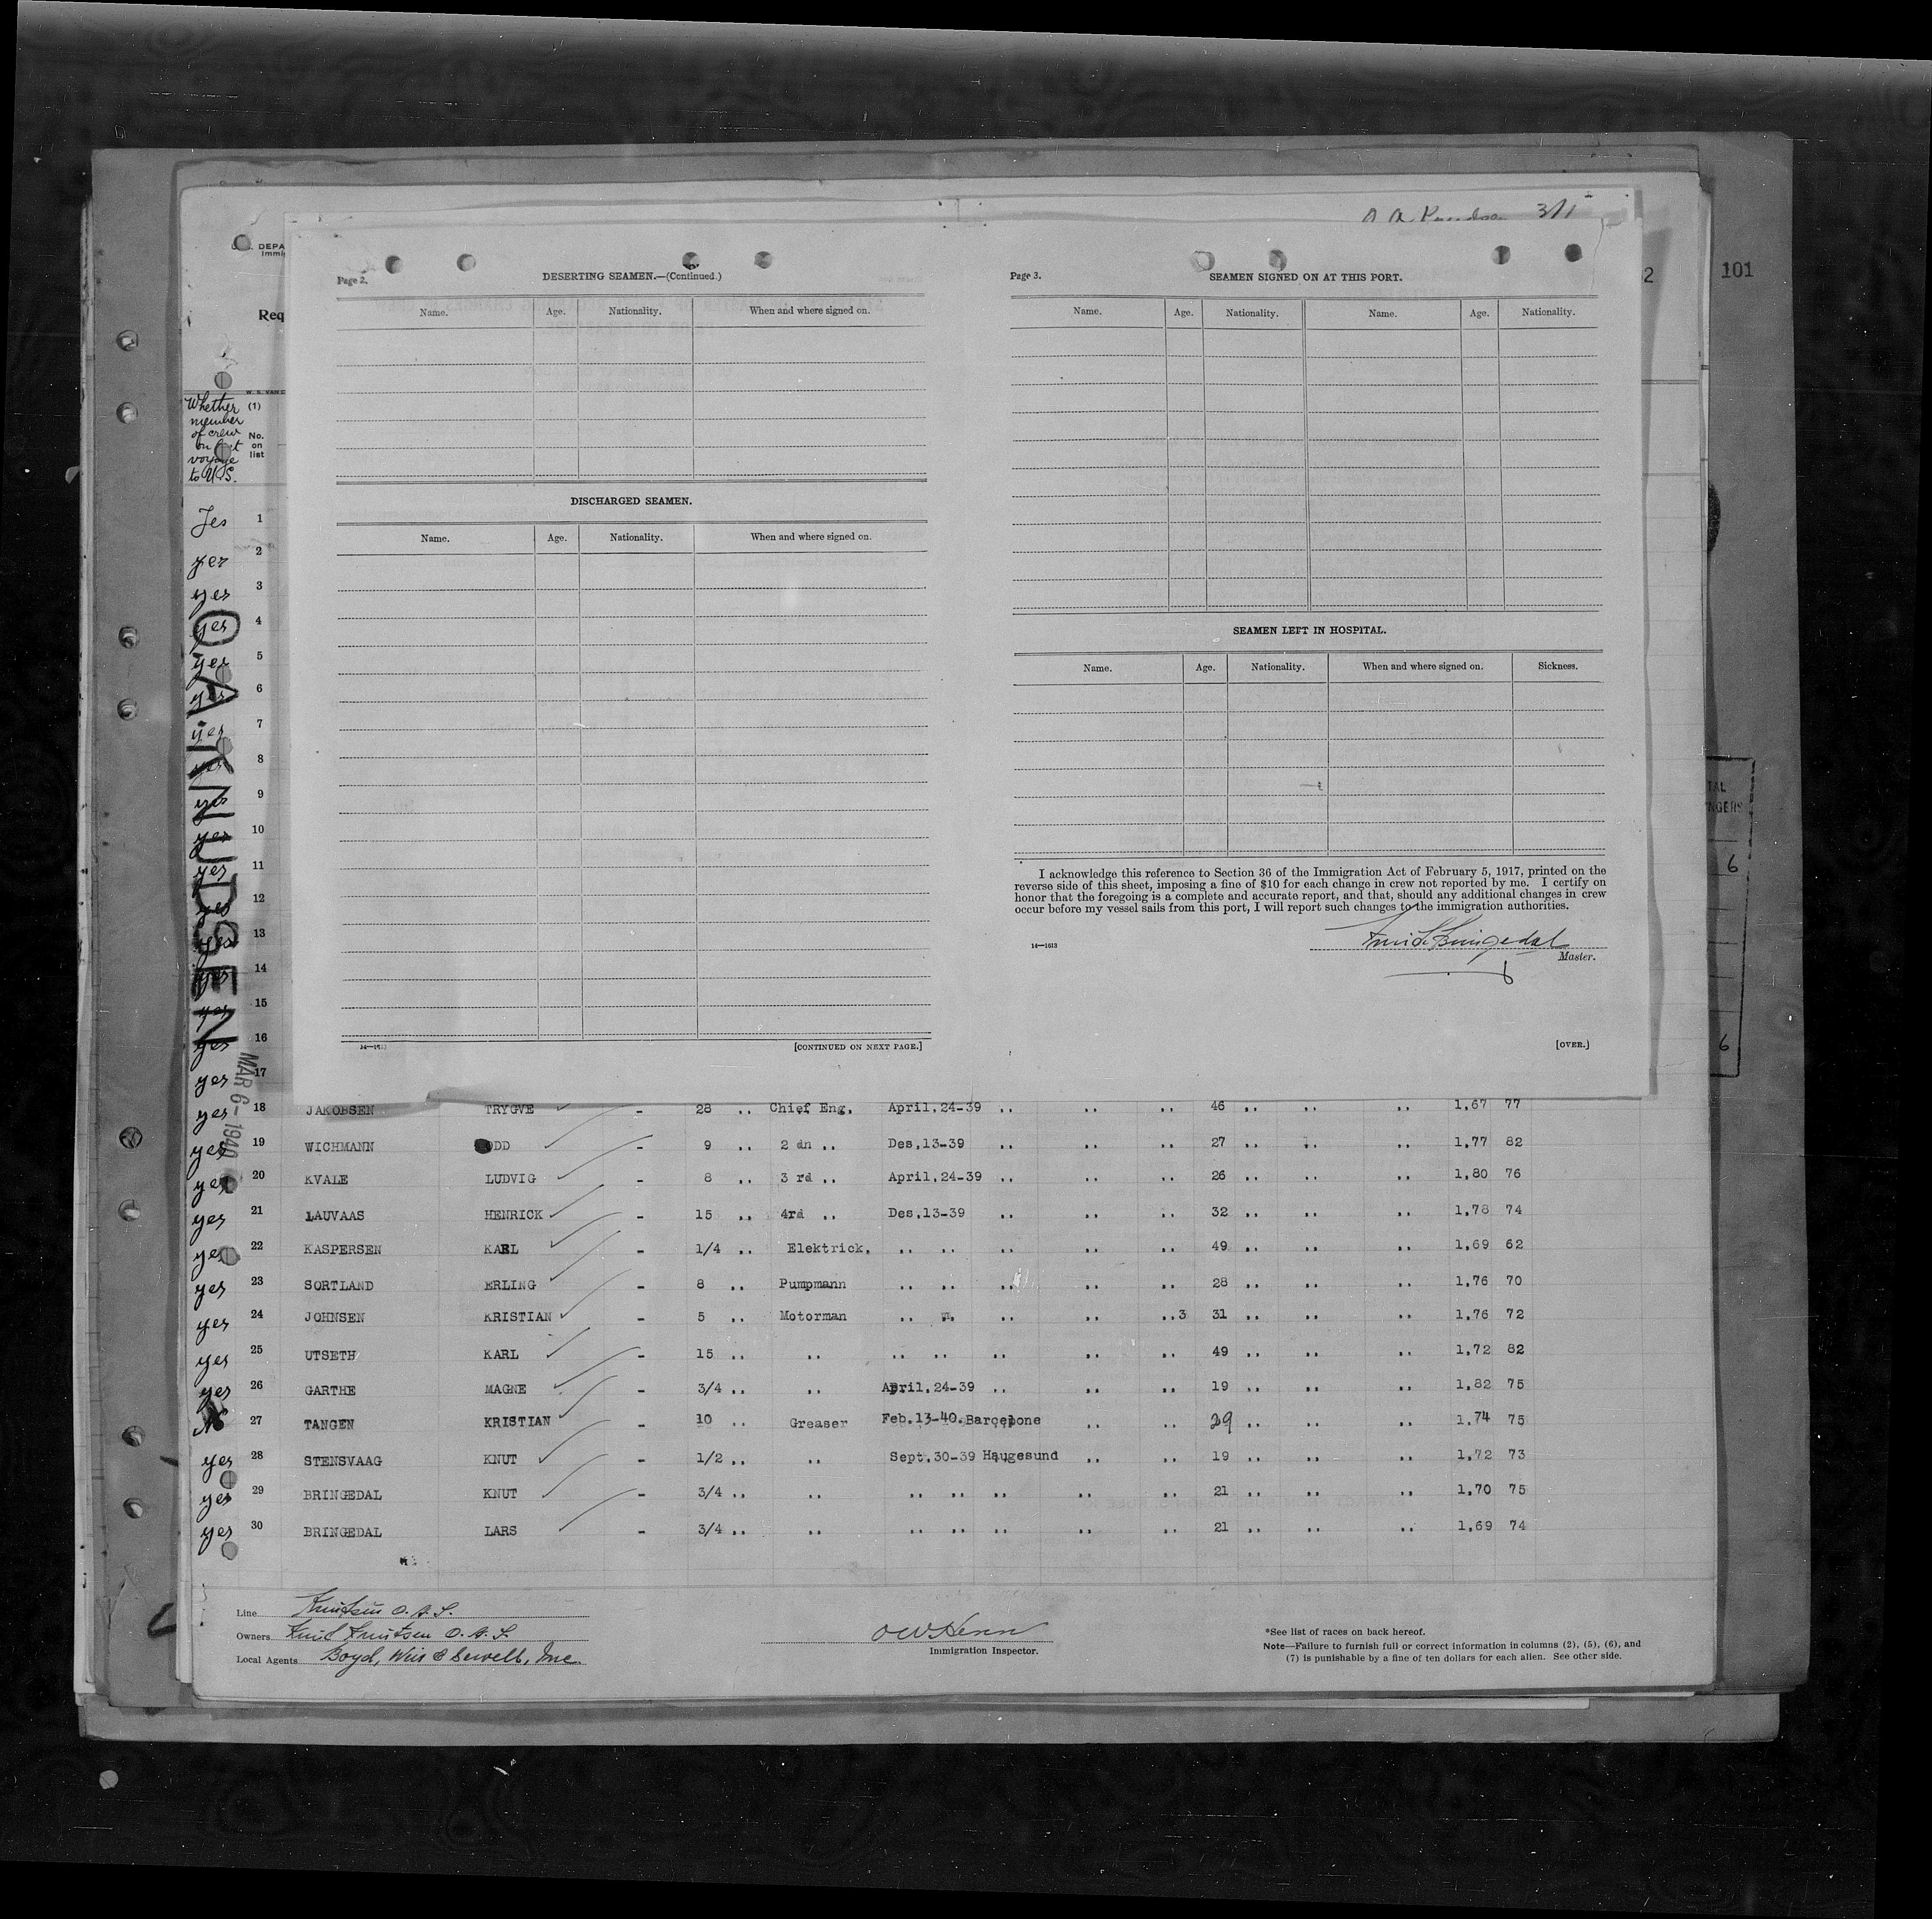 3/1
101
2
U. DEPA
Immi
Req
Page 2.
DESERTING SEAMEN.—(Continued.)
Name. Age. Nationality. When and where signed on.
DISCHARGED SEAMEN.
Name. Age. Nationality. When and where signed on.
14—1613
[CONTINUED ON NEXT PAGE.]
Page 3.
SEAMEN SIGNED ON AT THIS PORT.
Name. Age. Nationality. Name. Age. Nationality.
SEAMEN LEFT IN HOSPITAL.
Name. Age. Nationality. When and where signed on. Sickness.
I acknowledge this reference to Section 36 of the Immigration Act of February 5, 1917, printed on the
reverse side of this sheet, imposing a fine of $10 for each change in crew not reported by me. I certify on
honor that the foregoing is a complete and accurate report, and that, should any additional changes in crew
occur before my vessel sails from this port, I will report such changes to the immigration authorities.
14—1613
Master.
[OVER.]
TAL
NGERS
6
6
Whether
member
of crew
on last
voyage
to U.S.
(1)
No.
on
list
Yes 1
yes 2
yes 3
yes 4
yes 5
yes 6
yes 7
yes 8
yes 9
yes 10
yes 11
yes 12
yes 13
yes 14
yes 15
yes 16
yes 17
O A KNUDSEN
MAR 6-1940
yes 18 JAKOBSEN TRYGVE - 28 .. Chief Eng. April.24-39 .. .. .. 46 .. .. .. 1,67 77
yes 19 WICHMANN ODD - 9 .. 2 dn .. Des.13-39 .. .. 27 .. .. .. 1,77 82
yes 20 KVALE LUDVIG - 8 .. 3 rd .. April.24-39 .. .. .. 26 .. .. .. 1,80 76
yes 21 LAUVAAS HENRICK - 15 .. 4rd .. Des.13-39 .. .. .. 32 .. .. .. 1,78 74
yes 22 KASPERSEN KARL - 1/4 .. Elektrick. .. .. .. .. .. 49 .. .. .. 1,69 62
yes 23 SORTLAND ERLING - 8 .. Pumpmann .. .. .. .. .. 28 .. .. .. 1,76 70
yes 24 JOHNSEN KRISTIAN - 5 .. Motorman .. .. .. .. ..3 31 .. .. .. 1,76 72
yes 25 UTSETH KARL - 15 .. .. .. .. .. .. .. 49 .. .. .. 1,72 82
yes 26 GARTHE MAGNE - 3/4 .. .. April.24-39 .. .. .. 19 .. .. .. 1,82 75
27 TANGEN KRISTIAN - 10 .. Greaser Feb.13-40.Barcelone .. .. 29 .. .. .. 1,74 75
yes 28 STENSVAAG KNUT - 1/2 .. .. Sept.30-39 Haugesund .. .. 19 .. .. .. 1,72 73
yes 29 BRINGEDAL KNUT - 3/4 .. .. .. .. .. .. .. 21 .. .. .. 1,70 75
yes 30 BRINGEDAL LARS - 3/4 .. .. .. .. .. .. .. 21 .. .. .. 1,69 74
Line Knutsen O.A.S.
Owners Knut Knutsen O.A.S.
Local Agents Boyd, Weir & Sewell, Inc.
Immigration Inspector.
*See list of races on back hereof.
Note—Failure to furnish full or correct information in columns (2), (5), (6), and
(7) is punishable by a fine of ten dollars for each alien. See other side.